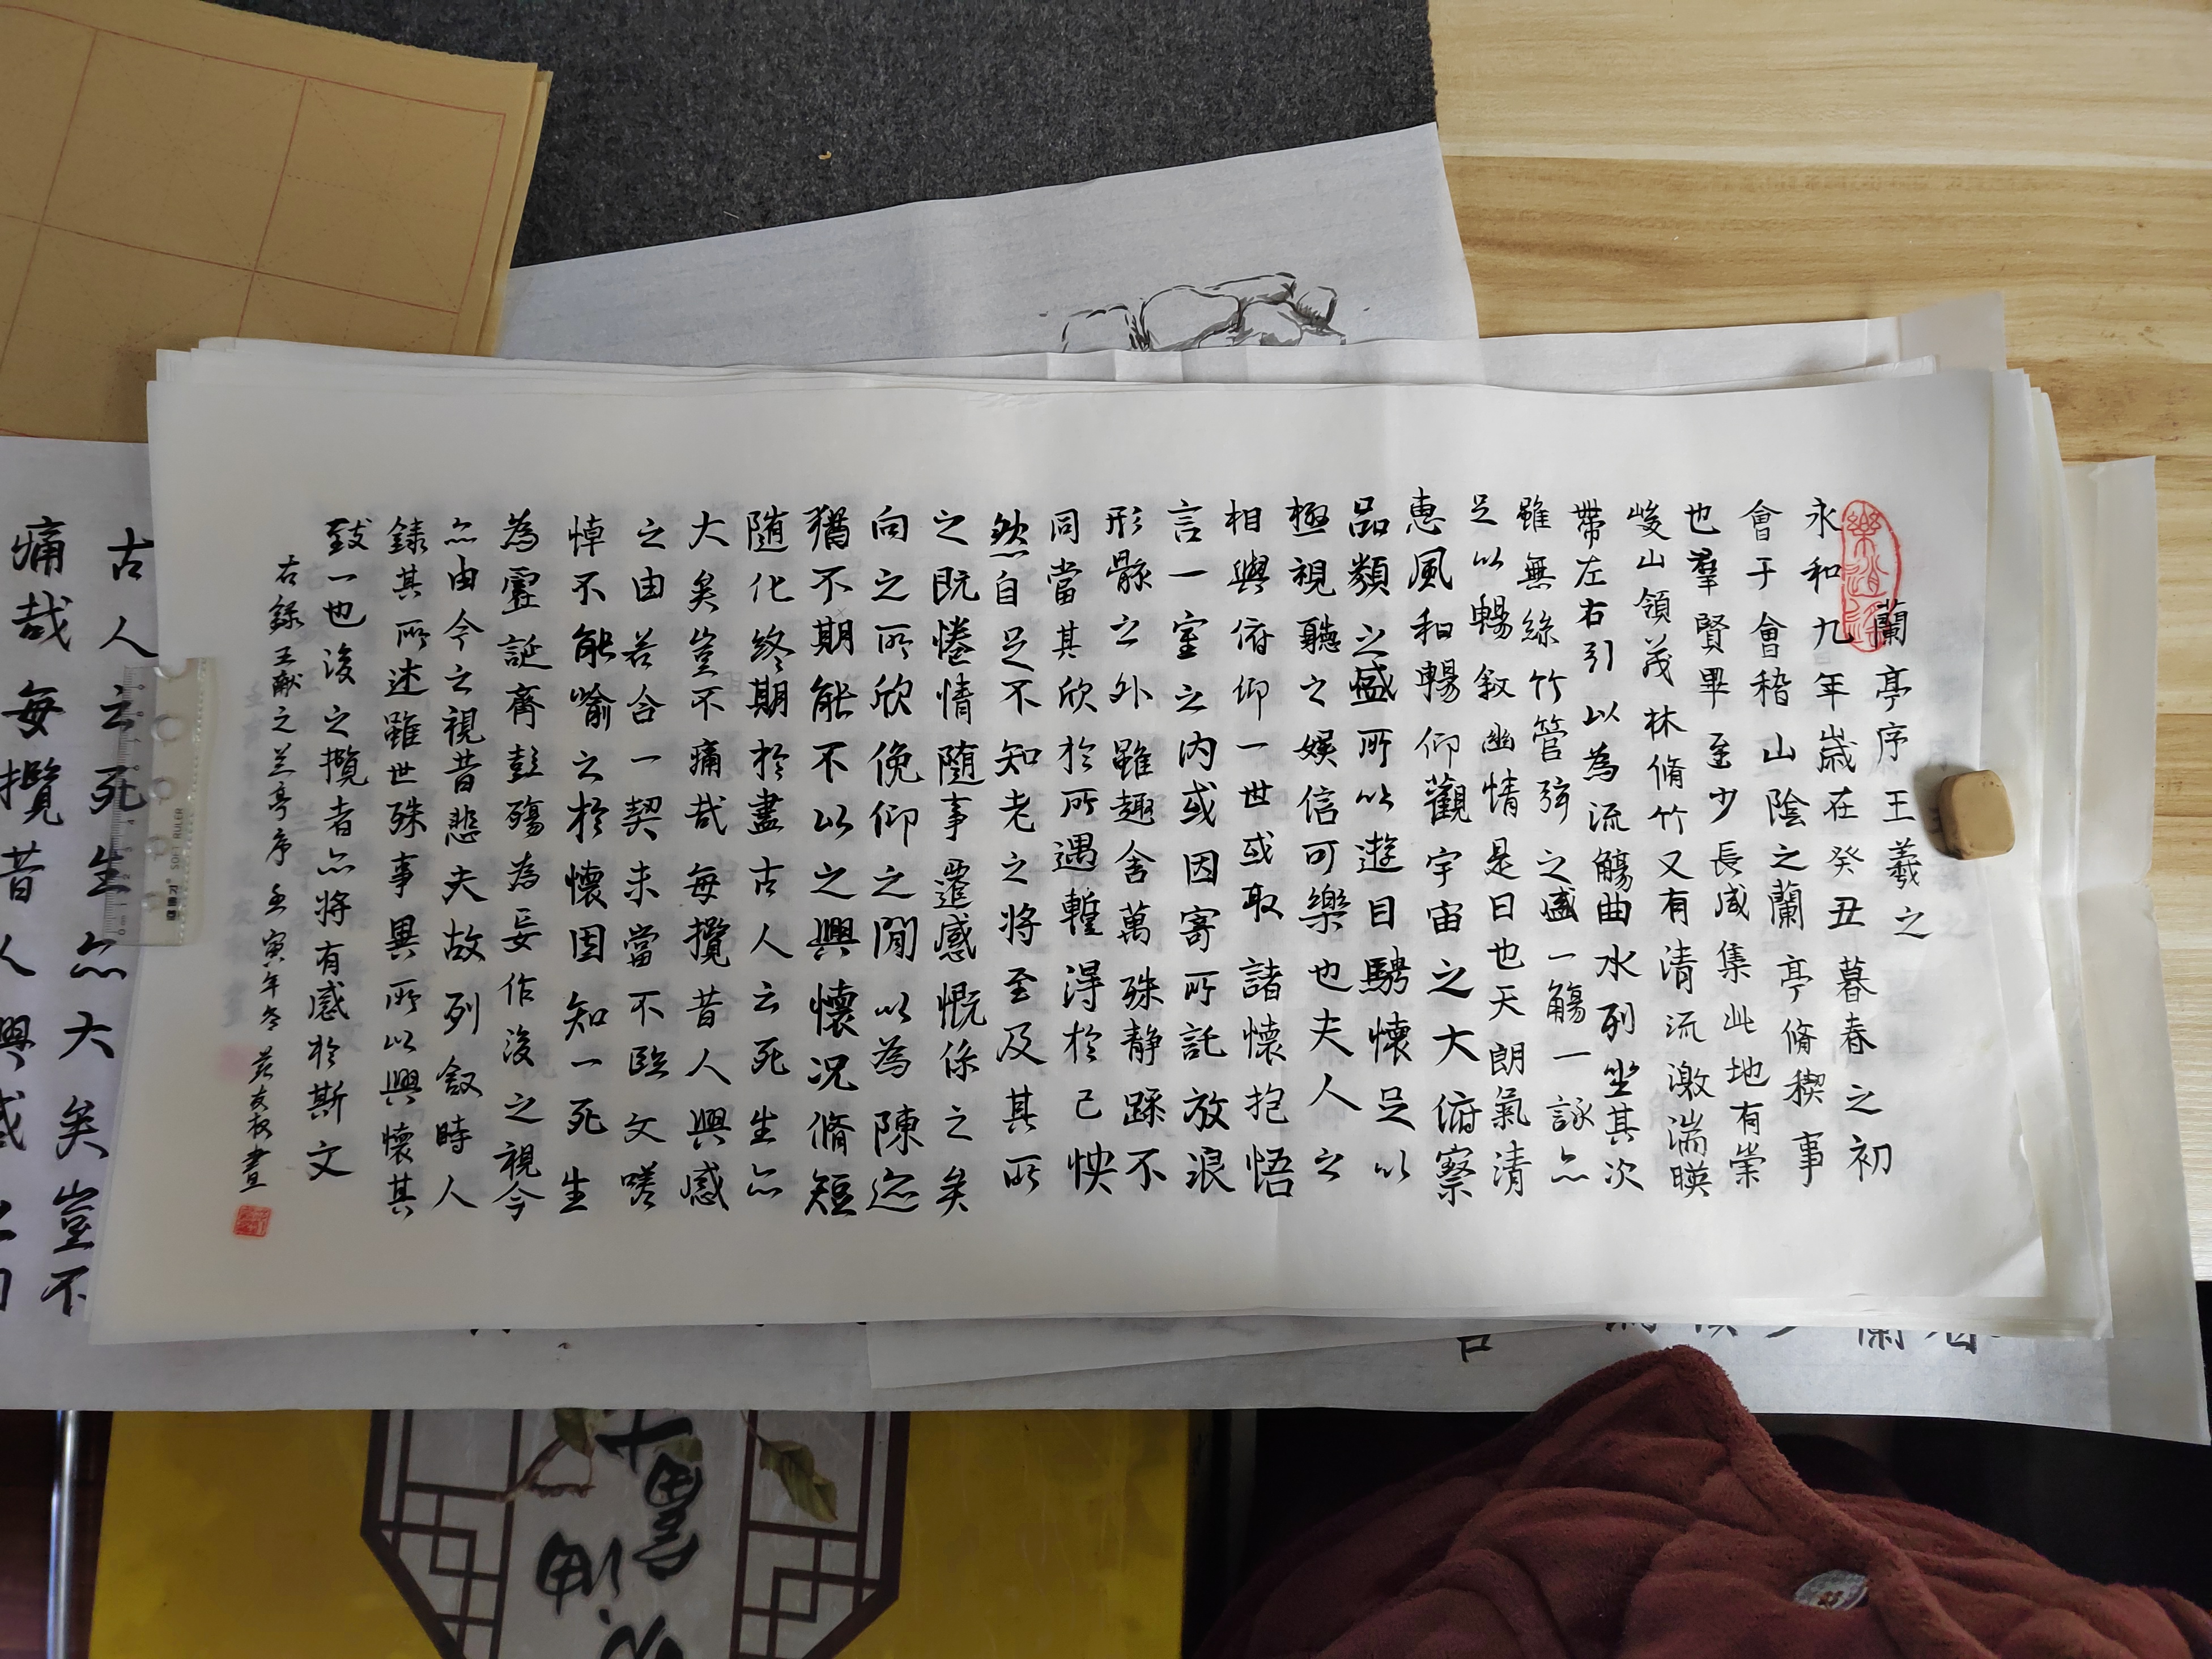 蘭亭序 王羲之
永和九年歲在癸丑暮春之初
會于會稽山陰之蘭亭脩稧事
也羣賢畢至少長咸集此地有崇
峻山領茂林脩竹又有清流激湍暎
帶左右引以為流觴曲水列坐其次
雖無絲竹管弦之盛一觴一詠亦
足以暢敘幽情是日也天朗氣清
惠風和暢仰觀宇宙之大俯察
品類之盛所以遊目騁懷足以
極視聽之娛信可樂也夫人之
相與俯仰一世或取諸懷抱悟
言一室之內或因寄所託放浪
形骸之外雖趣舍萬殊靜躁不
同當其欣於所遇暫得於己怏
然自足不知老之將至及其所
之既惓情隨事遷感慨係之矣
向之所欣俛仰之閒以為陳迹
猶不期能不以之興懷況脩短
隨化終期於盡古人云死生亦
大矣豈不痛哉每攬昔人興感
之由若合一契未當不臨文嗟
悼不能喻之於懷固知一死生
為虛誕齊彭殤為妄作後之視今
亦由今之視昔悲夫故列敘時人
錄其所述雖世殊事異所以興懷其
致一也後之攬者亦將有感於斯文
右錄王獻之兰亭序 壬寅年冬
古人云死生亦大矣豈不
痛哉每攬昔人興感
SOFT RULER